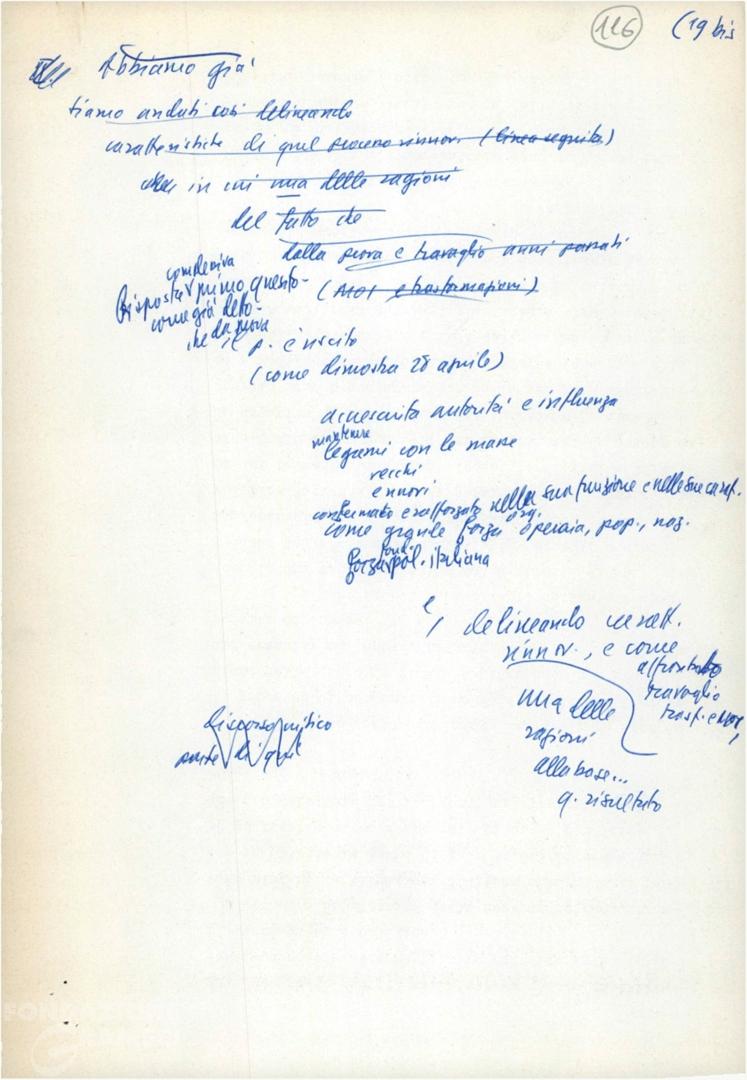 126 (19 bis
Abbiamo già
siamo andati così delineando
caratteristiche di quel processo rinnov. (linea seguita)
in cui una delle ragioni
del fatto che
dalla prova e travaglio anni passati
complessiva
Risposta primo quesito -
( e trasformazioni)
come già detto -
che da prova
il p. è uscito
(come dimostra 28 aprile)
accresciuta autorità e influenza
mantenere
legami con le masse
vecchi
e nuovi
confermato e rafforzato nella sua funzione e nelle sue caratt.
org.
come grande forza operaia, pop., naz.
fond.
forza pol. italiana
e, delineando caratt.
rinnov., e come
affrontato
travaglio
trasf. e
una delle
ragioni
alla base...
q. risultato
discorso critico
parte di quel
FONDAZIONE
GRAMSCI